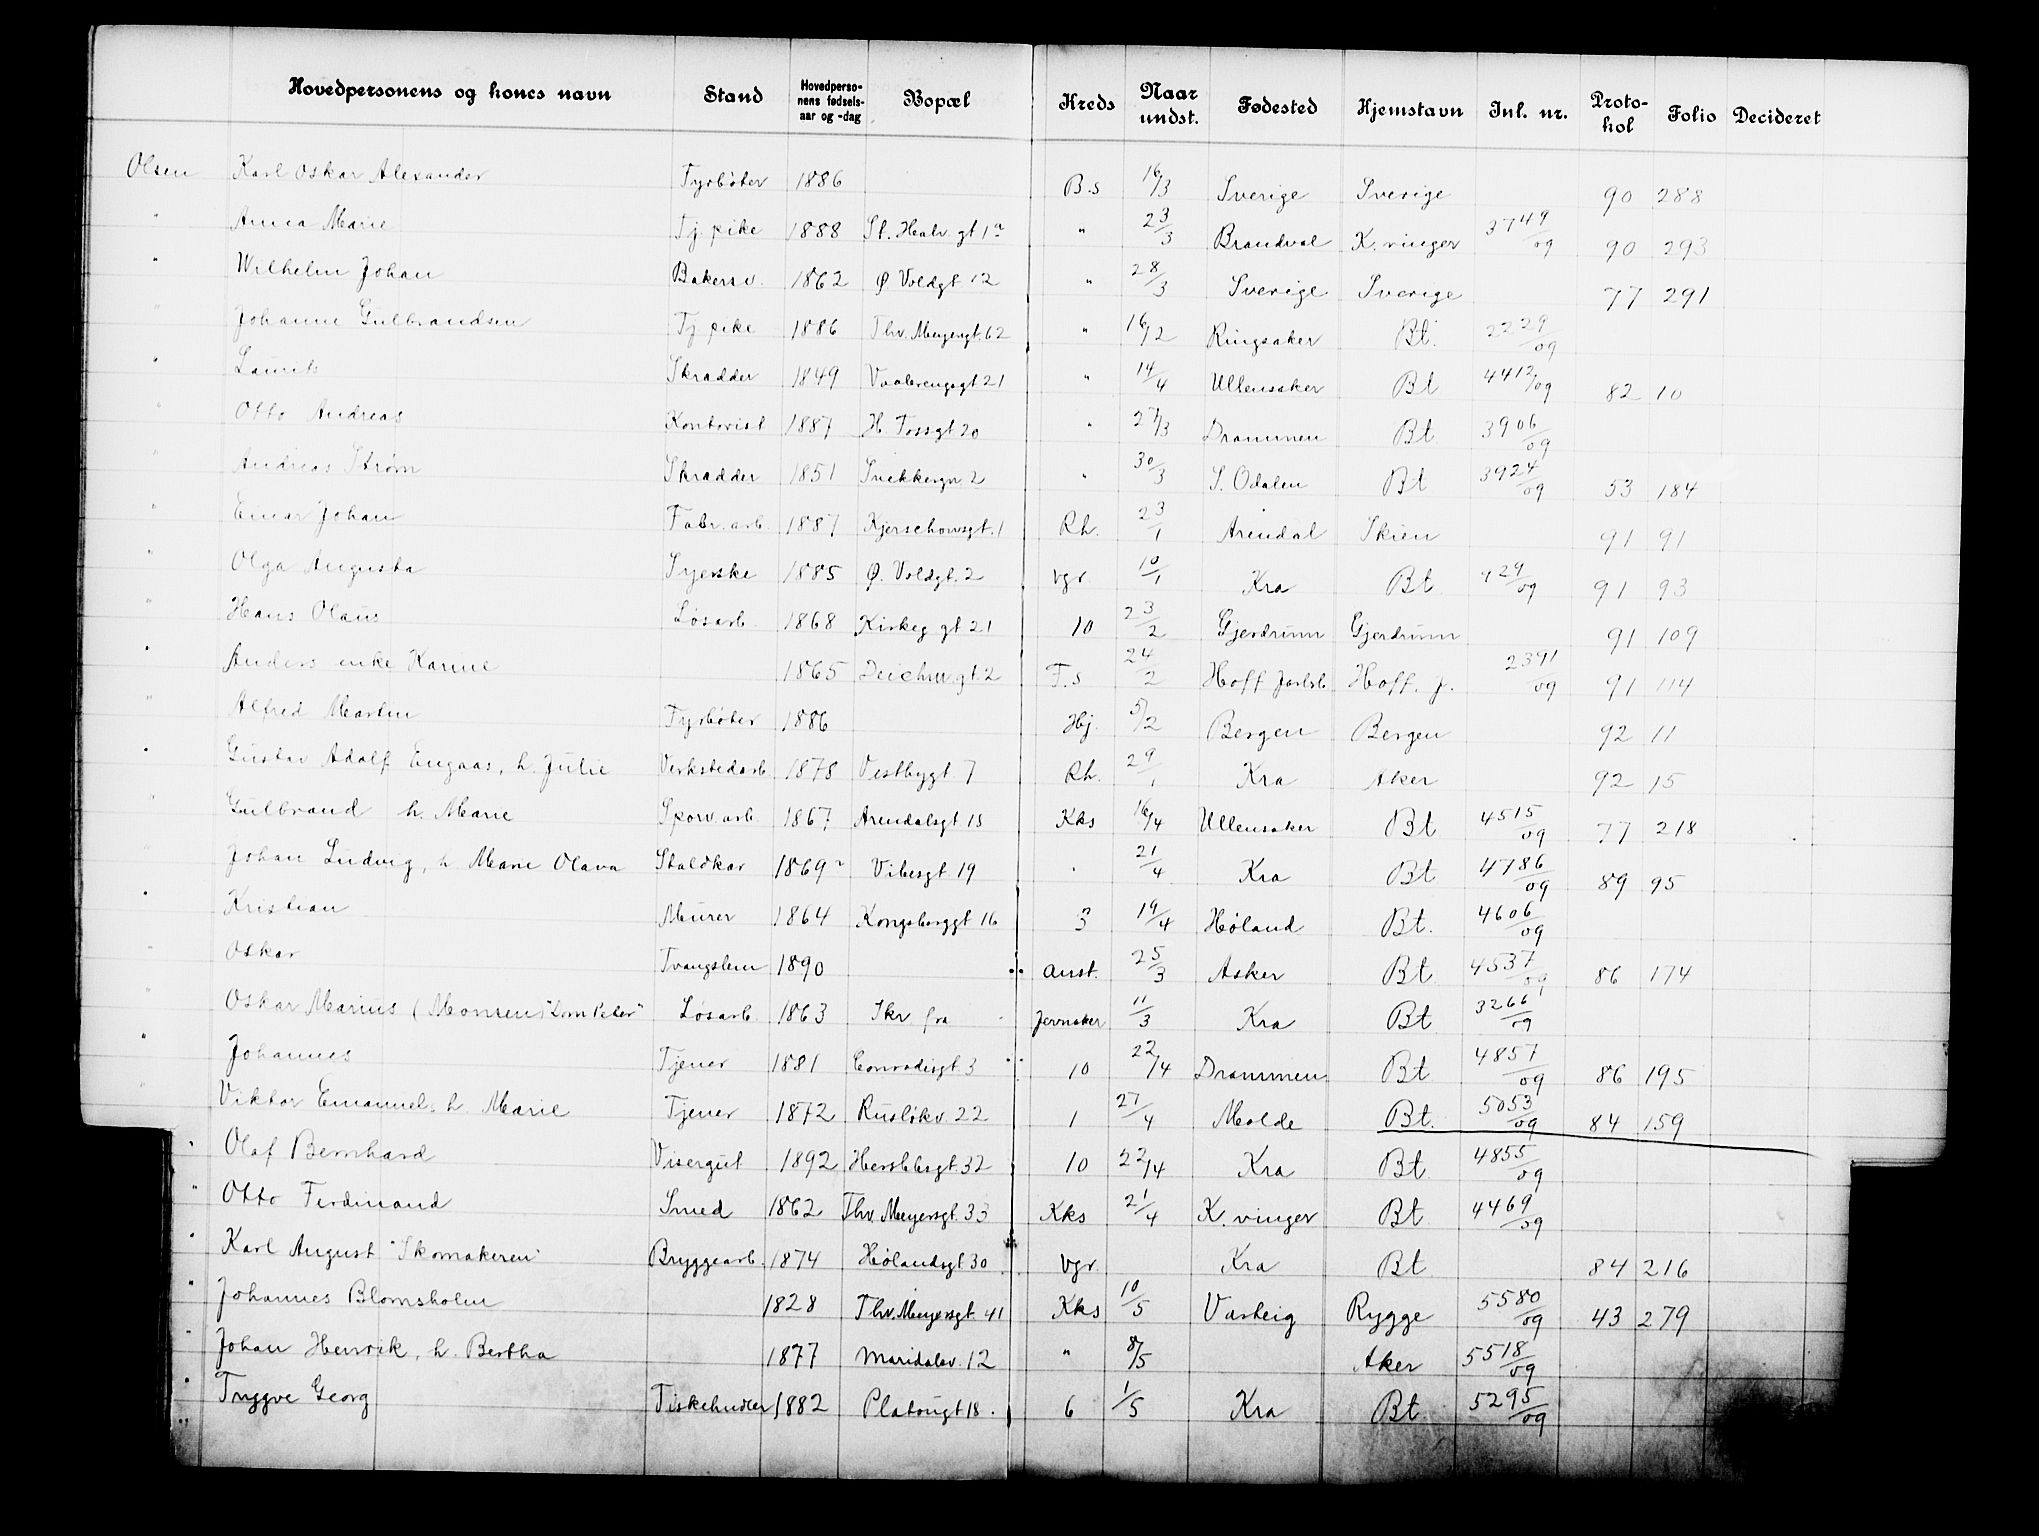 Hovedpersonens og kones navn Stand Hovedpersonens fødselsaar og -dag Bopæl Kreds Naar undst. Fødested Hjemstavn Inl. nr. Protokol Folio Decideret
Olsen Karl Oskar Alexander Fyrbøter 1886 B.s 16/3 Sverige Sverige 90 288
" Anna Marie Tj. pike 1888 St. Halv. gt 1a " 23/3 Brandval K. vinger 3749/09 90 293
" Wilhelm Johan Bakersv. 1862 Ø Voldgt. 12 " 28/3 Sverige Sverige 77 291
" Johanne Gulbrandsen Tj. pike 1886 Thv. Meyersgt. 62 " 16/2 Ringsaker Bt. 2229/09
" Laurits Skradder 1849 Vaalerengagt 21 " 14/4 Ullensaker Bt 4412/09 82 10
" Otto Andreas Kontorist 1887 H. Tossgt 20 " 27/3 Drammen Bt 3906/09
" Andreas Strøm Skradder 1851 Snekkergn 2 " 30/3 S. Odalen Bt 3924/09 53 184
" Einar Johan Fabr. arb. 1887 Kjerschowsgt. 1 Rh. 23/1 Arendal Skien 91 91
" Olga Augusta Syerske 1885 Ø. Voldgt. 2 Vgr. 10/1 Kra Bt 929/09 91 93
" Hans Olaus Løsarb. 1868 Kirkeg gt 21 10 23/2 Gjerdrum Gjerdrum 91 109
" Anders enke Karine 1865 Deichm gt. 2 F.s 24/2 Hoff Jarlsb. Hoff. J. 2391/09 91 114
" Alfred Martin Fyrbøter 1886 Hj. 5/2 Bergen Bergen 92 11
" Gustav Adolf Engaas, h. Julie Verkstedarb. 1878 Vestbygt. 7 Rh. 29/1 Kra Aker 92 15
" Gulbrand h. Marie Sporv. arb. 1867 Arendalsgt 15 Kks 16/4 Ullensaker Bt 4515/09 77 218
Johan Ludvig, h Marie Olava Staldkar 1869 Vibesgt. 19 " 21/4 Kra Bt 4786/09 89 95
" Kristian Murer 1864 Kongsberggt 16 3 19/4 Høland Bt. 4606/09
" Oskar Tvangslem 1890 anst. 25/3 Asker Bt 4537/09 86 174
" Oskar Marius (Monsen) "Lom Peter" Løsarb. 1863 Skr fra Jevnaker 11/3 Kra Bt 3266/09
" Johannes Tjener 1881 Conradisgt. 3 10 22/4 Drammen Bt 4857/09 86 195
" Viktor Emanuel, h. Marie Tjener 1872 Rusløkv. 22 1 27/4 Molde Bt. 5053/09 84 159
" Olaf Bernhard Visergut 1892 Herslebsgt. 32 10 22/4 Kra Bt. 4855/09
" Otto Ferdinand Smed 1862 Thv. Meyersgt. 33 Kks 21/4 K. vinger Bt 4469/09
" Karl August "Skomakeren" Bryggearb. 1874 Hølandsgt 30 Vgr. Kra Bt 84 216
" Johannes Blomsholm 1828 Thv. Meyersgt. 41 Kks 10/5 Varteig Rygge 5580/09 43 279
" Johan Henrik, h. Bertha 1877 Maridalsv. 12 " 8/5 Aker 5518/09
" Tryggve Georg Fiskehndler 1882 Platougt 18. 6 1/5 Kra Bt 5295/09
"